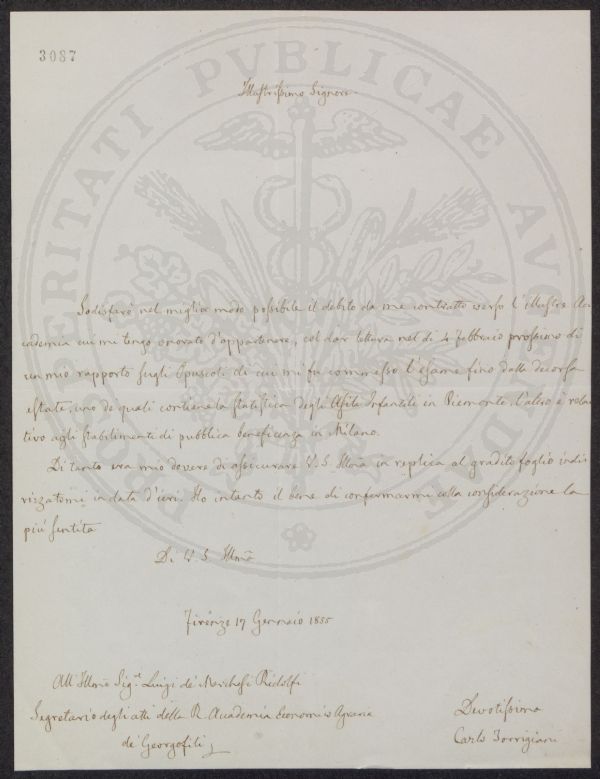 3087
PROSPERITATI PVBLICAE AVGENDAE
Illustrissimo Signore
Sodisferò nel miglior modo possibile il debito da me contratto verso l'illustre Ac-
cademia cui mi tengo onorato d'appartenere, col dar lettura nel dì 4 febbraio prossimo di
un mio rapporto sugli Opuscoli di cui mi fu commesso l'esame fino dalla decorsa
estate, uno de quali contiene la statistica degli Asili Infantili in Piemonte, l'altro è rela-
tivo agli stabilimenti di pubblica beneficenza in Milano.
Di tanto era mio dovere di assecurare V. S. Illma in replica al gradito foglio indi-
rizzatomi in data d'ieri. Ho intanto il bene di confermarmi colla considerazione la
più sentita
Di V. S. Illma
Firenze 17 Gennaio 1855
All' Illmo Sig.re Luigi de' Marchesi Ridolfi
Segretario degli atti della R. Accademia Economico Agraria
de' Georgofili
Devotissimo
Carlo Torrigiani